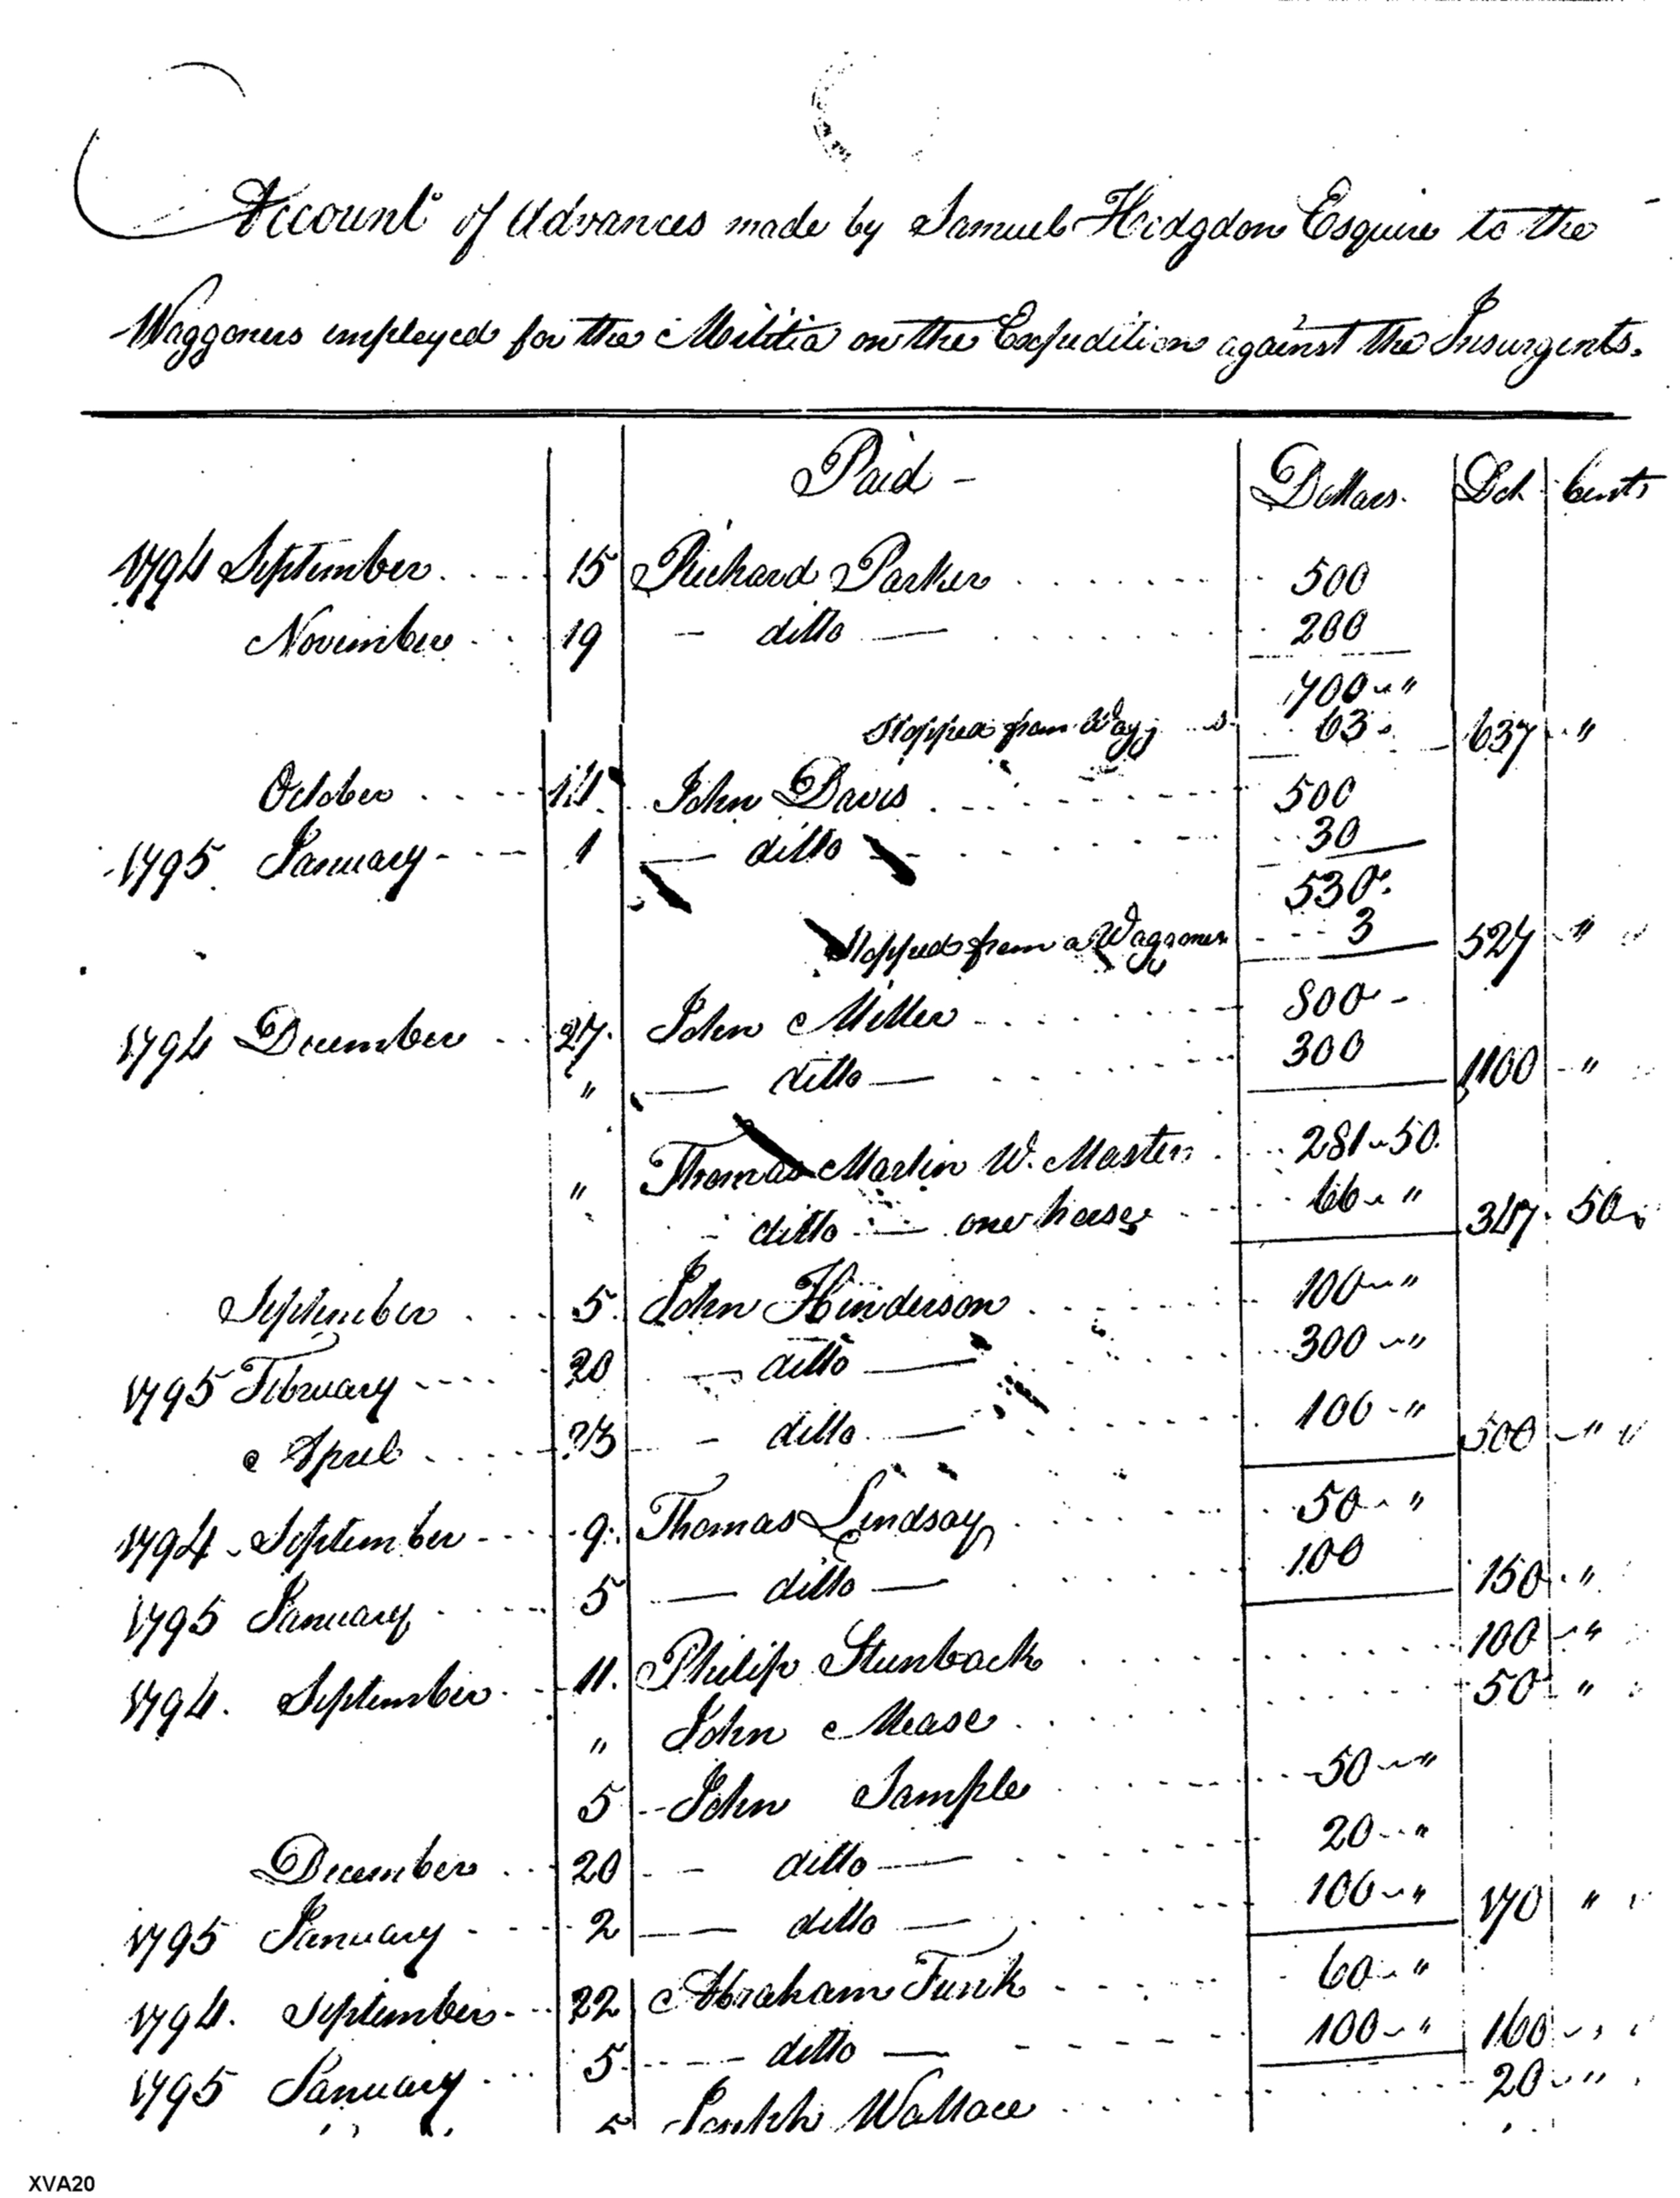 Account of Advances made by Samuel Hodgdon Esquire to the
Waggoners employed for the Militia on the Expedition against the Insurgents.
Paid - Dollars. Dol. Cents
1794 September 15 Richard Parker 500
November 19 - ditto - 200
700 "
Stopped from 63 637 "
October 14 John Davis 500
1795 January 1 - ditto 30
530
Stopped from a Waggoner 3 527 "
1794 December 27 John Miller 800 -
" - ditto - 300 1100 "
" Thomas Martin W. Master 281 50
ditto - one horse 66 " 347 50
September 5 John Hinderson 100 "
1795 February 20 - ditto - 300 "
April 23 - ditto - 100 " 500 "
1794 September 9 Thomas Lindsay 50 "
1795 January 5 - ditto - 100 150 "
1794. September 11. Philip Stunback 100 "
" John Mease 50 "
5 John Sample 50 "
December 20 - ditto - 20 "
1795 January 2 - ditto - 100 " 170 "
1794. September 22 Abraham Funk 60 "
1795 January 5 - ditto - 100 " 160 "
5 Wallace 20 "
XVA20